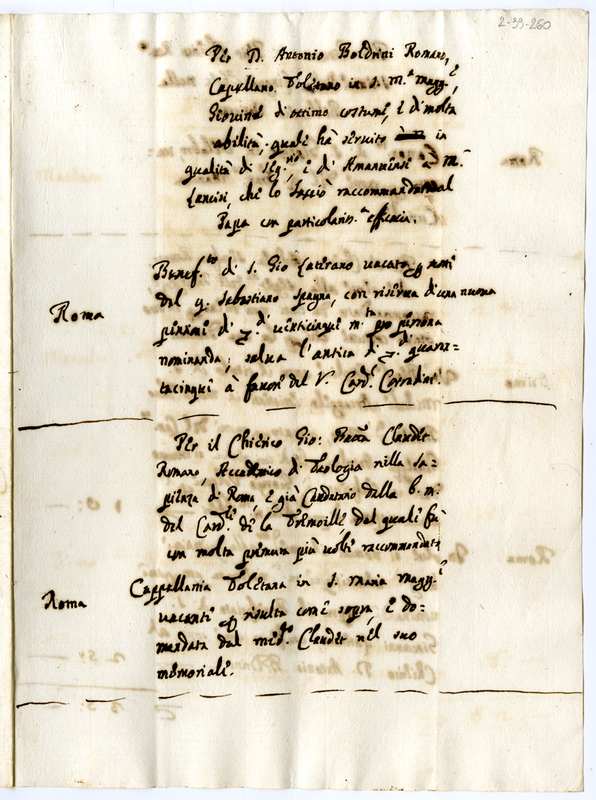 2-39-260
Per D. Antonio Boldrini Romano,
Cappellano Toletano in S. M.a Magg.e,
Giovine di ottimo costume, e di molta
abilità, quale hà servito in
qualità di Seg.rio, e di Amanuense a M.r
Lancisi, che lo lasciò raccommandato al
Papa con particolariss.a efficacia.
Benef.to di S. Gio Laterano vacato per morte
del q. Sebastiano Spagna, con riserva di una nuova
Roma
pensione di venticinque m.ta pro persona
nominanda; salva l'antica di quaran=
tacinque à favore del V. Card.l Corradini.
Per il Chierico Gio: Batta Claudet
Romano, Accademico di Teologia nella Sa=
pienza di Roma, e già Caudatario della b. m.
del Card.le de la Tremoille, dal quale fù
con molta premura più volte raccommandato
Cappellania Toletana in S. Maria Magg.e
Roma
vacante per risulta come sopra, e do=
mandata dal med.mo Claudet nel suo
memoriale.